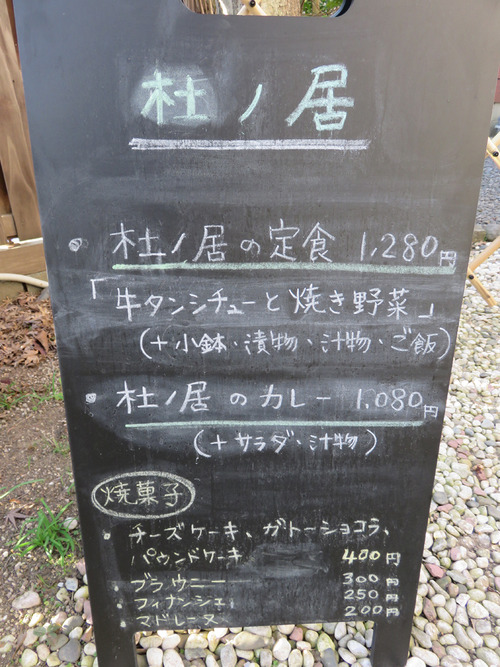 杜ノ居
・杜ノ居の定食 1,280円
「牛タンシチューと焼き野菜」
(+小鉢・漬物・汁物・ご飯)
・杜ノ居のカレー 1,080円
(+サラダ・汁物)
焼菓子
・チーズケーキ、ガトーショコラ、
パウンドケーキ 400円
・ブラウニー 300円
・フィナンシェ 250円
・マドレーヌ 200円